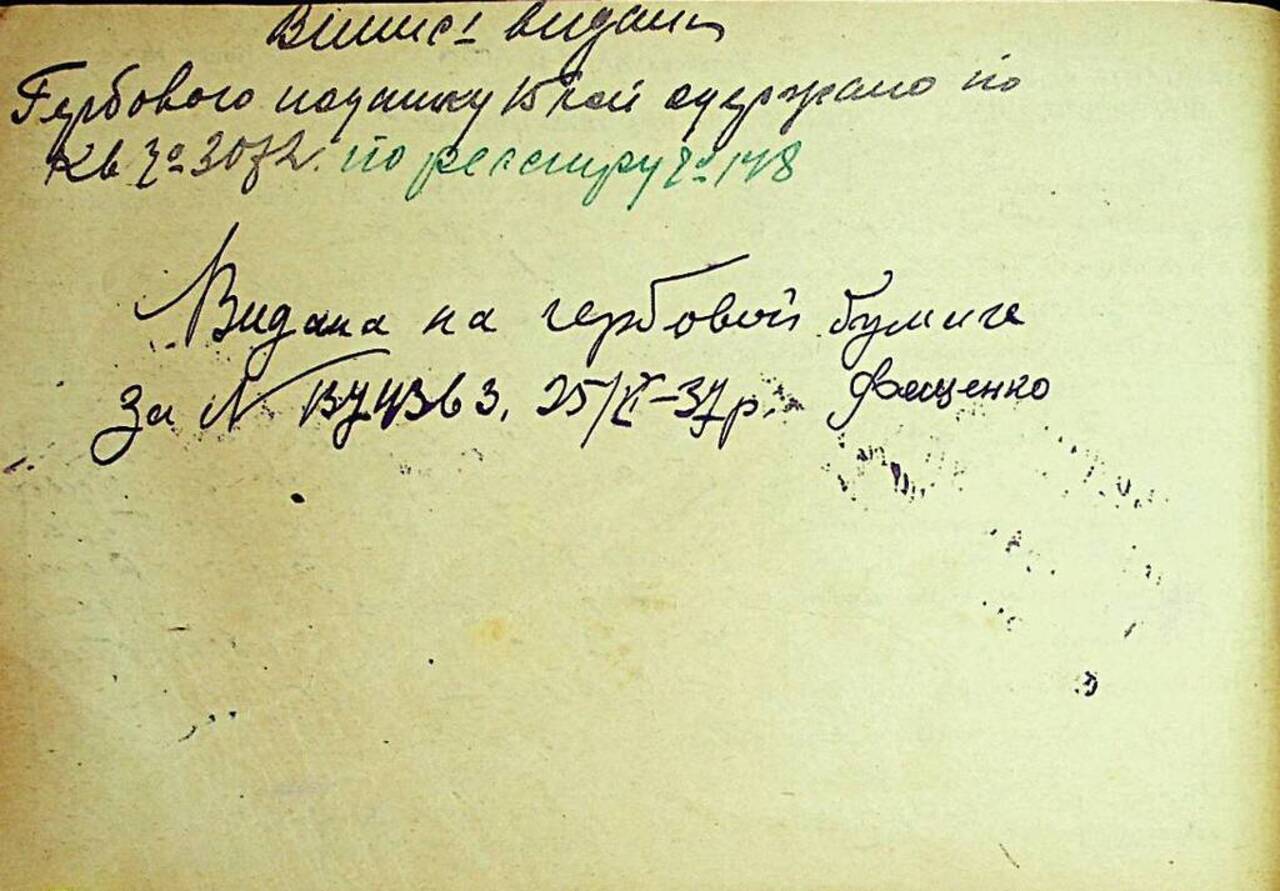 видан
Гербового податку 15 коп одержано по
Кв № 3072. по реестру № 148
Видана на гербовой бумиге
За № 025/XI-37р. Фащенко